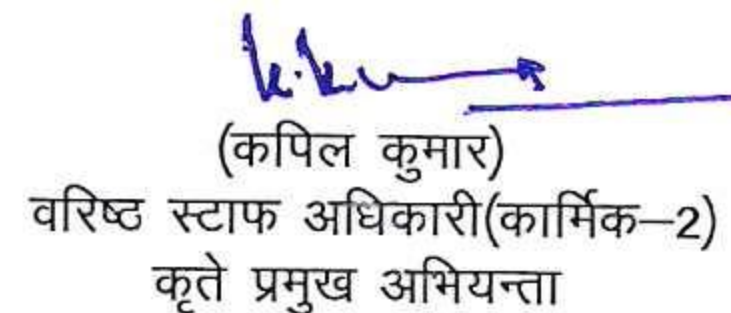 (कपिल कुमार)
वरिष्ठ स्टाफ अधिकारी(कार्मिक–2)
कृते प्रमुख अभियन्ता